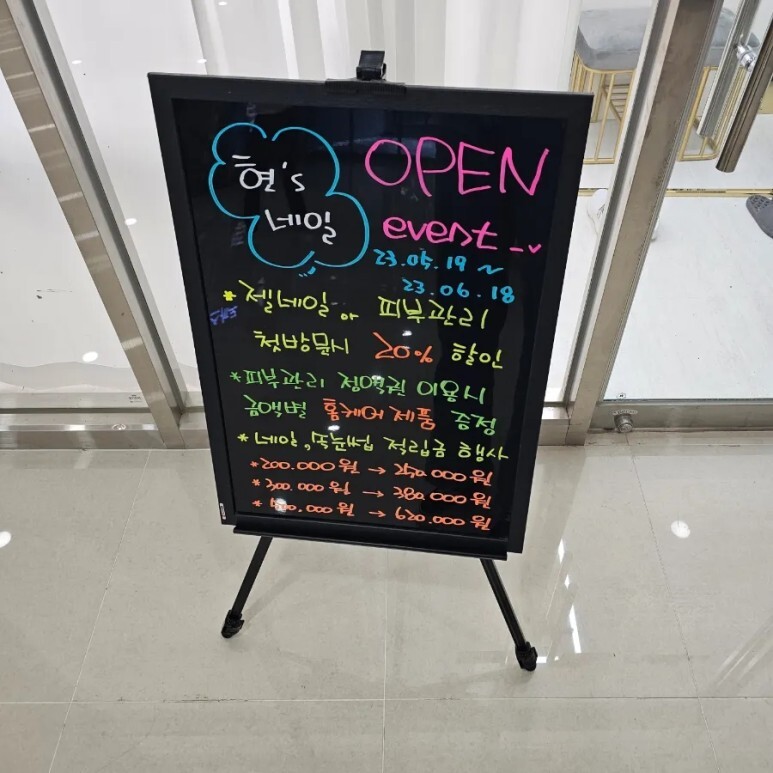 현's
네일
OPEN
event
23.05.19 ~
23.06.18
* 젤네일 or 피부관리
첫방문시 20% 할인
* 피부관리 정액권 이용시
금액별 홈케어 제품 증정
* 네일, 속눈썹 적립금 행사
* 200.000 원 → 250.000 원
* 300.000 원 → 380.000 원
* 500.000 원 → 620.000 원